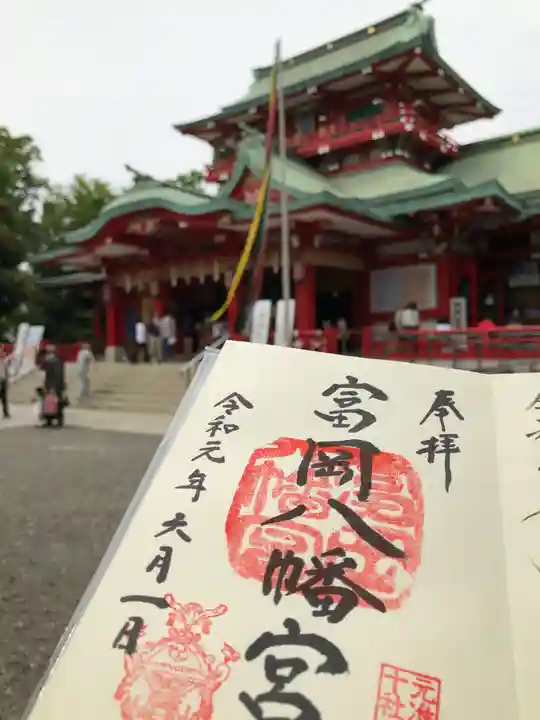 奉拝
富岡八幡宮
令和元年六月一日
元准
十社